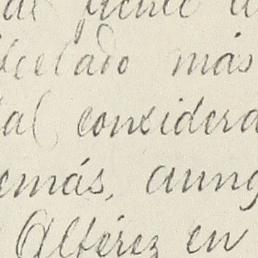 frente a
celado más
al considera
emás, aunq
Alférez en